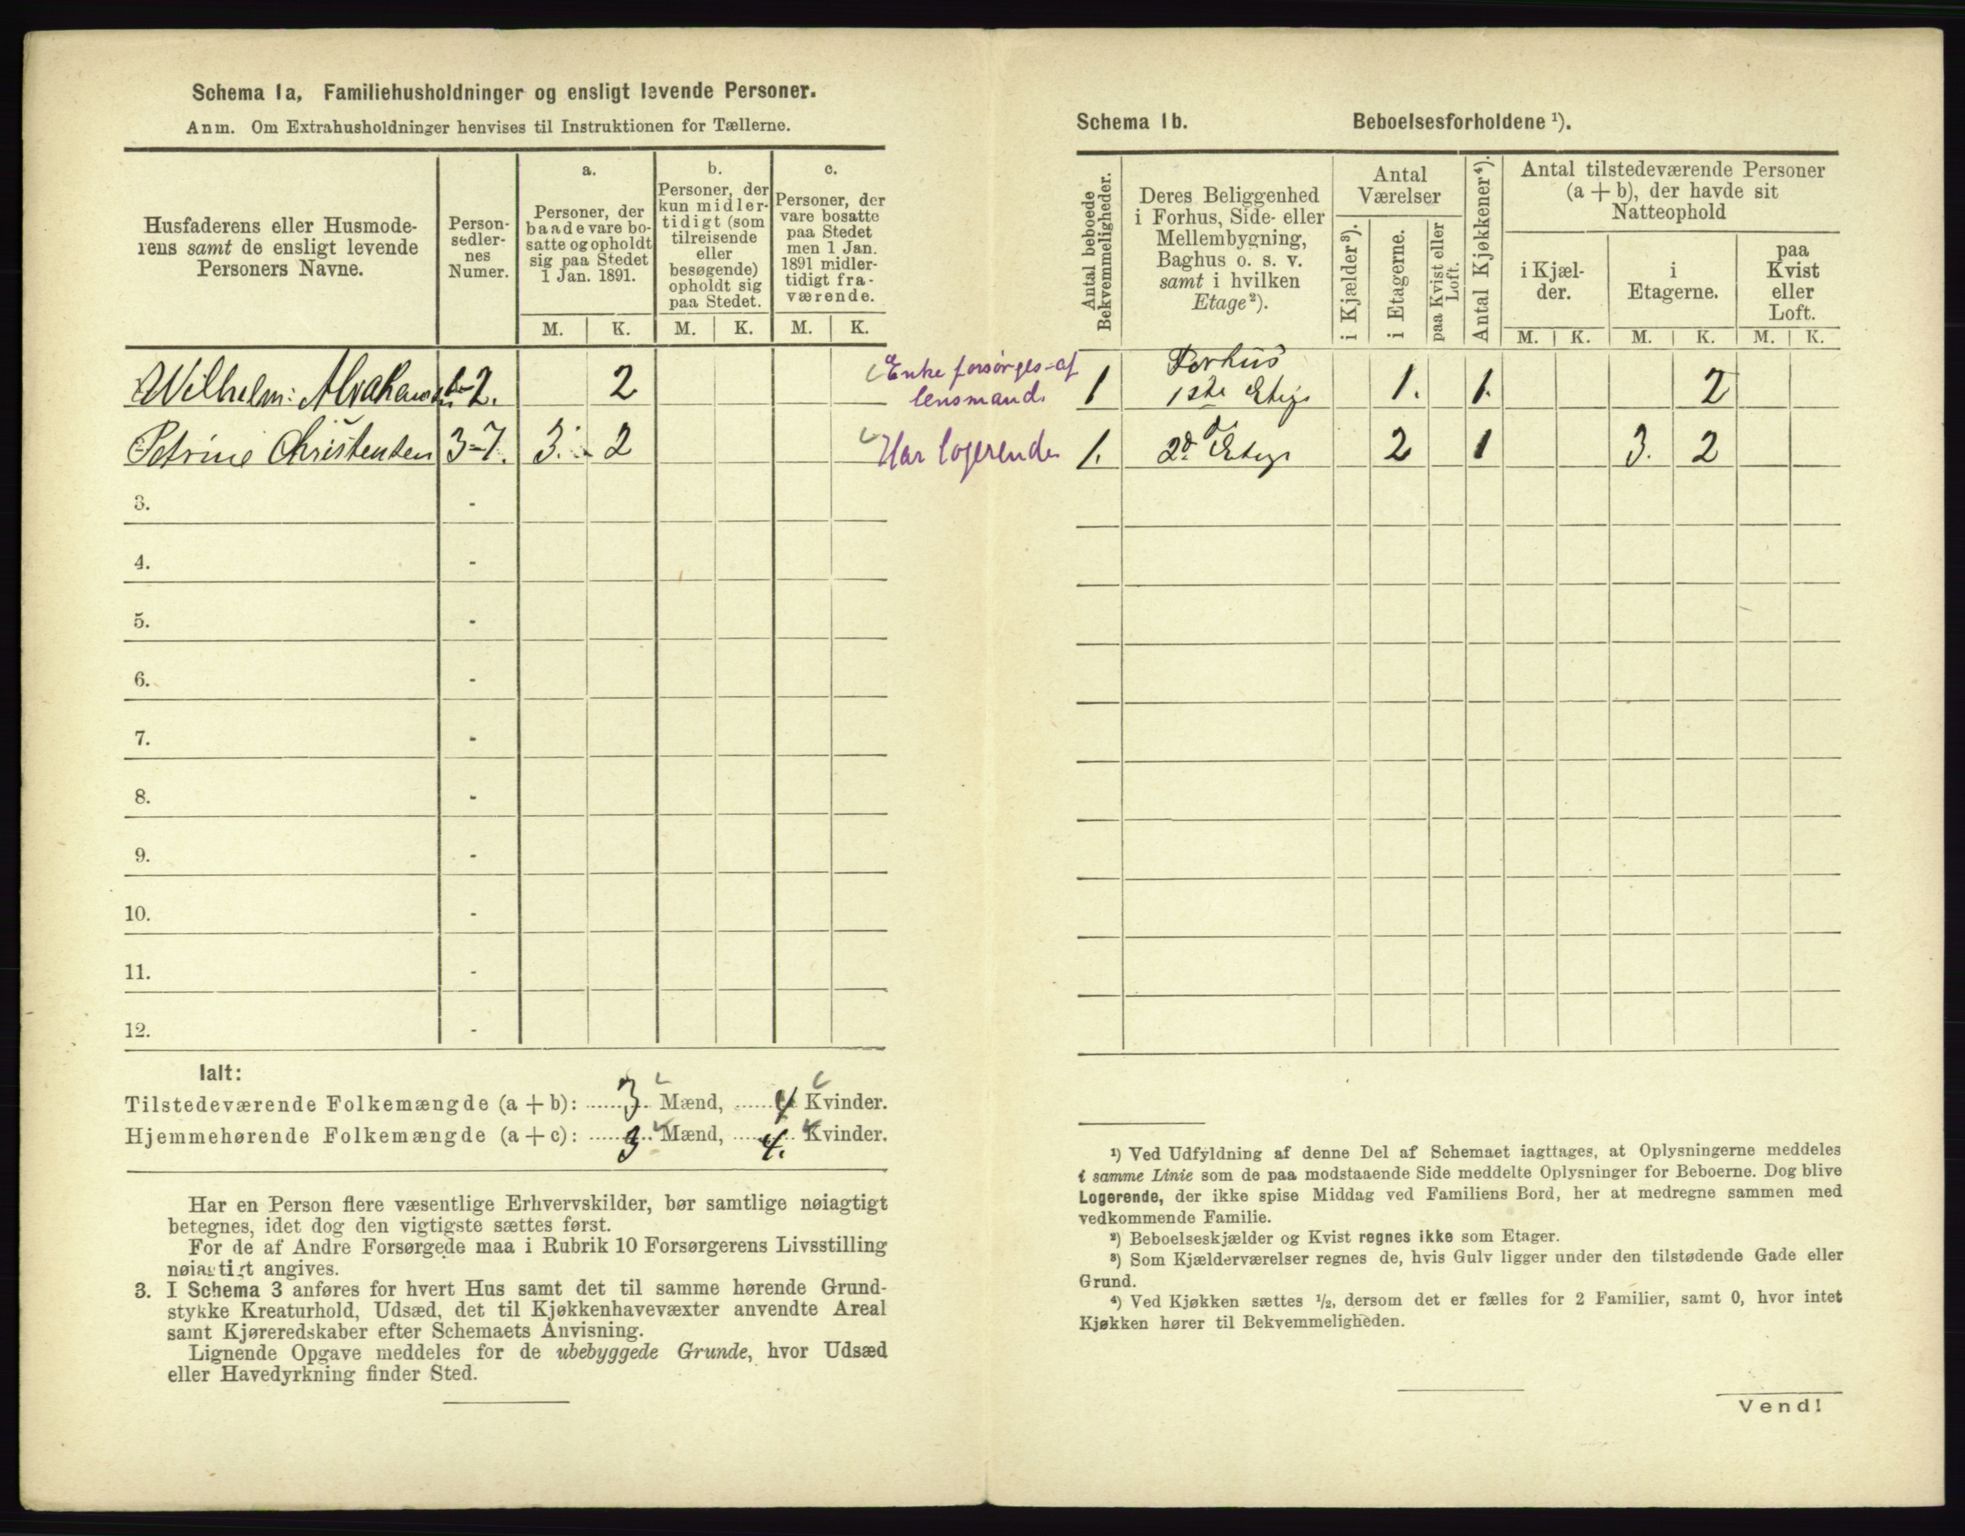 Schema 1a, Familiehusholdninger og ensligt levende Personer.
Anm. Om Extrahusholdninger henvises til Instruktionen for Tællerne.
Husfaderens eller Husmode-
rens samt de ensligt levende
Personers Navne.
Person-
sedler-
nes
Numer.
a.
Personer, der
baade vare bo-
satte og opholdt
sig paa Stedet
1 Jan. 1891.
b.
Personer, der
kun midler-
tidigt (som
tilreisende
eller
besøgende)
opholdt sig
paa Stedet.
c.
Personer, der
vare bosatte
paa Stedet
men 1 Jan.
1891 midler-
tidigt fra-
værende.
M. K. M. K. M. K.
Wilhelm: 1-2. 2
Enke forsørges af
lensmand.
Petrine Christensen 3-7. 3. 2
Har logerende
3. -
4. -
5. -
6. -
7. -
8. -
9. -
10. -
11. -
12. -
Ialt:
Tilstedeværende Folkemængde (a + b): 3 Mænd, 4 Kvinder.
Hjemmehørende Folkemængde (a + c): 3 Mænd, 4. Kvinder.
Har en Person flere væsentlige Erhvervskilder, bør samtlige nøiagtigt
betegnes, idet dog den vigtigste sættes først.
For de af Andre Forsørgede maa i Rubrik 10 Forsørgerens Livsstilling
nøiagtigt angives.
3. I Schema 3 anføres for hvert Hus samt det til samme hørende Grund-
stykke Kreaturhold, Udsæd, det til Kjøkkenhavevæxter anvendte Areal
samt Kjøreredskaber efter Schemaets Anvisning.
Lignende Opgave meddeles for de ubebyggede Grunde, hvor Udsæd
eller Havedyrkning finder Sted.
Schema 1b. Beboelsesforholdene ¹).
Antal beboede
Bekvemmeligheder.
Deres Beliggenhed
i Forhus, Side- eller
Mellembygning,
Baghus o. s. v.
samt i hvilken
Etage²).
Antal
Værelser
i Kjælder³).
i Etagerne.
paa Kvist eller
Loft.
Antal Kjøkkener⁴).
Antal tilstedeværende Personer
(a + b), der havde sit
Natteophold
i Kjæl-
der.
i
Etagerne.
paa
Kvist
eller
Loft.
M. K. M. K. M. K.
Forhus
1 1ste Etage 1. 1. 2
1. 2d Etage 2 1 3. 2
¹) Ved Udfyldning af denne Del af Schemaet iagttages, at Oplysningerne meddeles
i samme Linie som de paa modstaaende Side meddelte Oplysninger for Beboerne. Dog blive
Logerende, der ikke spise Middag ved Familiens Bord, her at medregne sammen med
vedkommende Familie.
²) Beboelseskjælder og Kvist regnes ikke som Etager.
³) Som Kjælderværelser regnes de, hvis Gulv ligger under den tilstødende Gade eller
Grund.
⁴) Ved Kjøkken sættes ½, dersom det er fælles for 2 Familier, samt 0, hvor intet
Kjøkken hører til Bekvemmeligheden.
Vend!